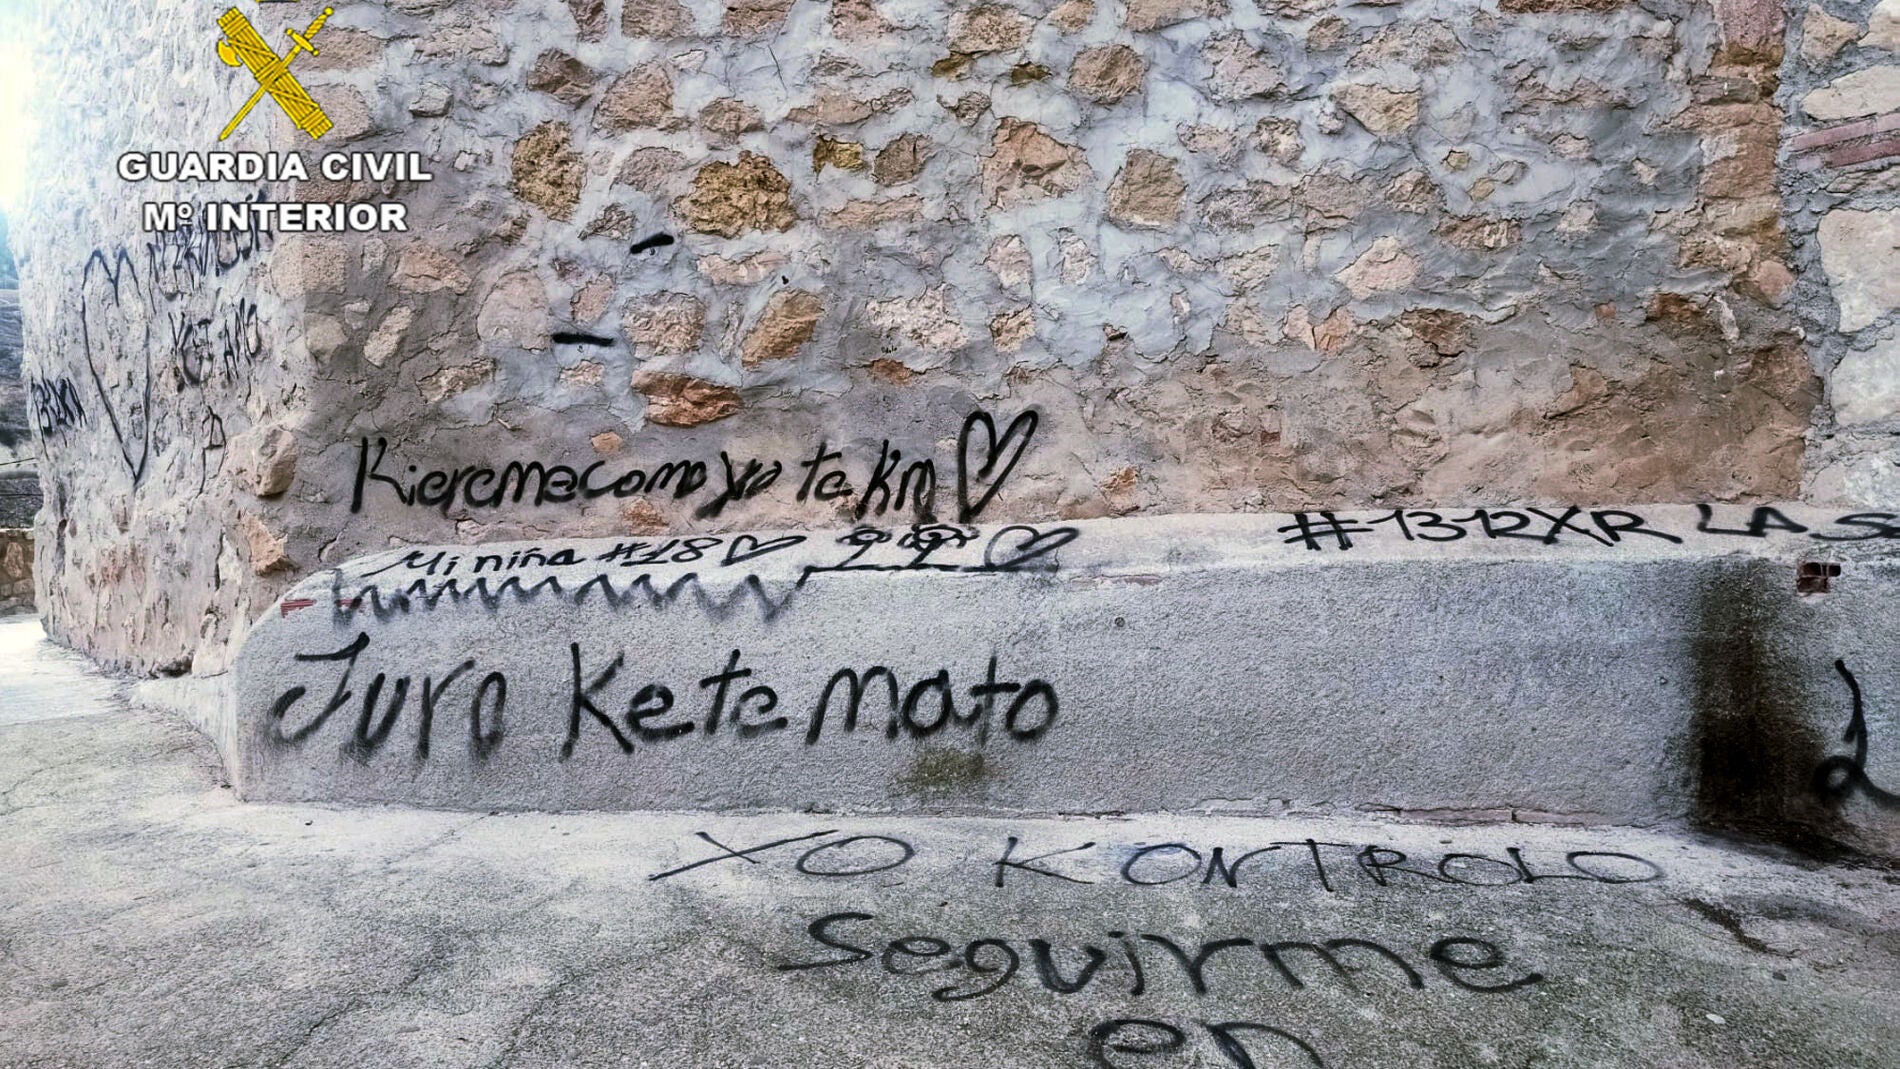 GUARDIA CIVIL
Mº INTERIOR
YO TE AMO
Kiereme como yo te km
Mi niña #18
#1312XR LA
Juro Ke te mato
YO KONTROLO
Seguirme
en